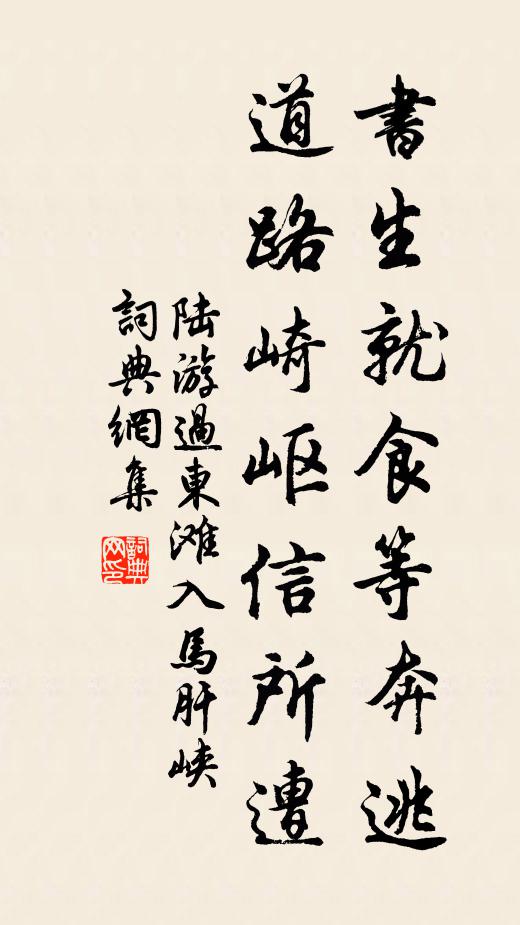 書生就食等奔逃
道路崎岖信所遭
陆游過東滩入馬肝峡
詞典網集
詞典网印